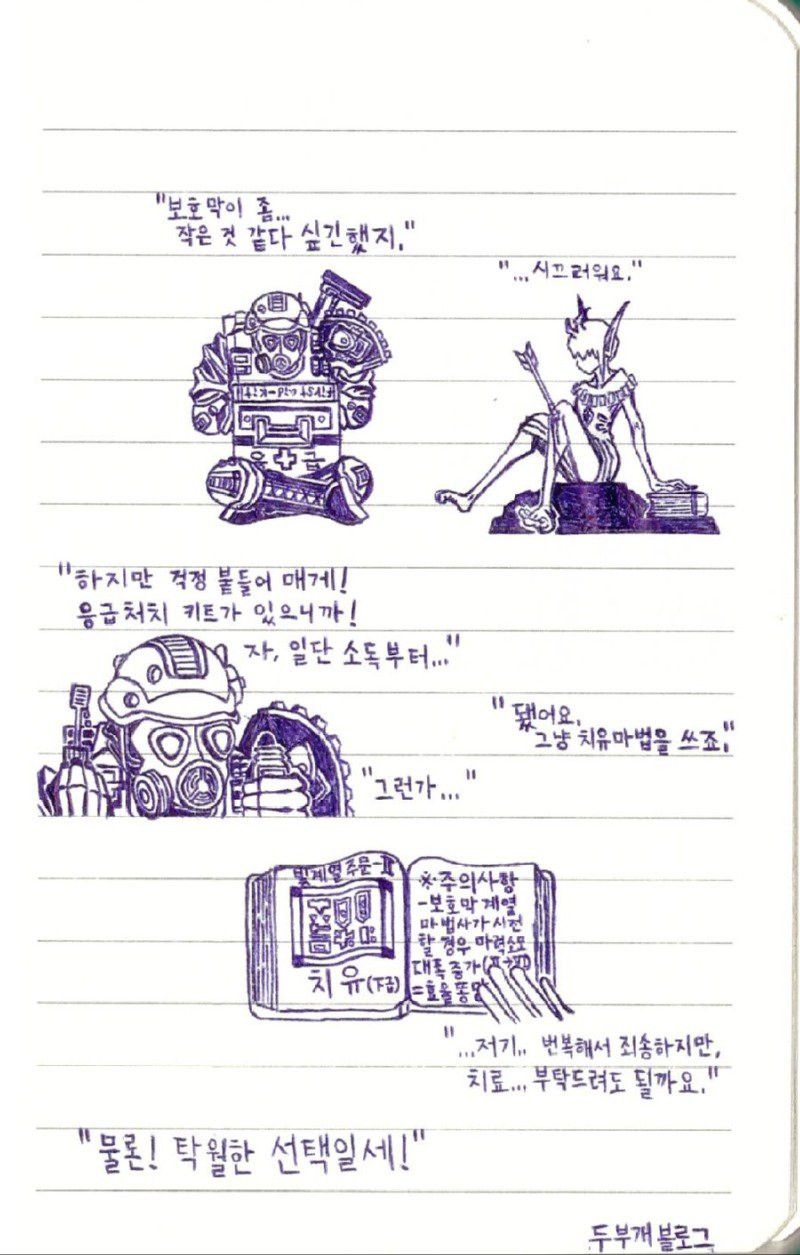 "보호막이 좀...
작은 것 같다 싶긴했지."
"...시끄러워요."
First aid-kit
응+급
"하지만 걱정 붙들어 매게!
응급처치 키트가 있으니까!
자, 일단 소독부터..."
"됐어요,
그냥 치유마법을 쓰죠."
"그런가..."
빛계열주문-II
치유(下급)
※주의사항
-보호막 계열
마법사가 시전
할 경우 마력소모
대폭 증가(II→VI)
=효율똥망
"...저기.. 번복해서 죄송하지만,
치료... 부탁드려도 될까요."
"물론! 탁월한 선택일세!"
두부개블로그